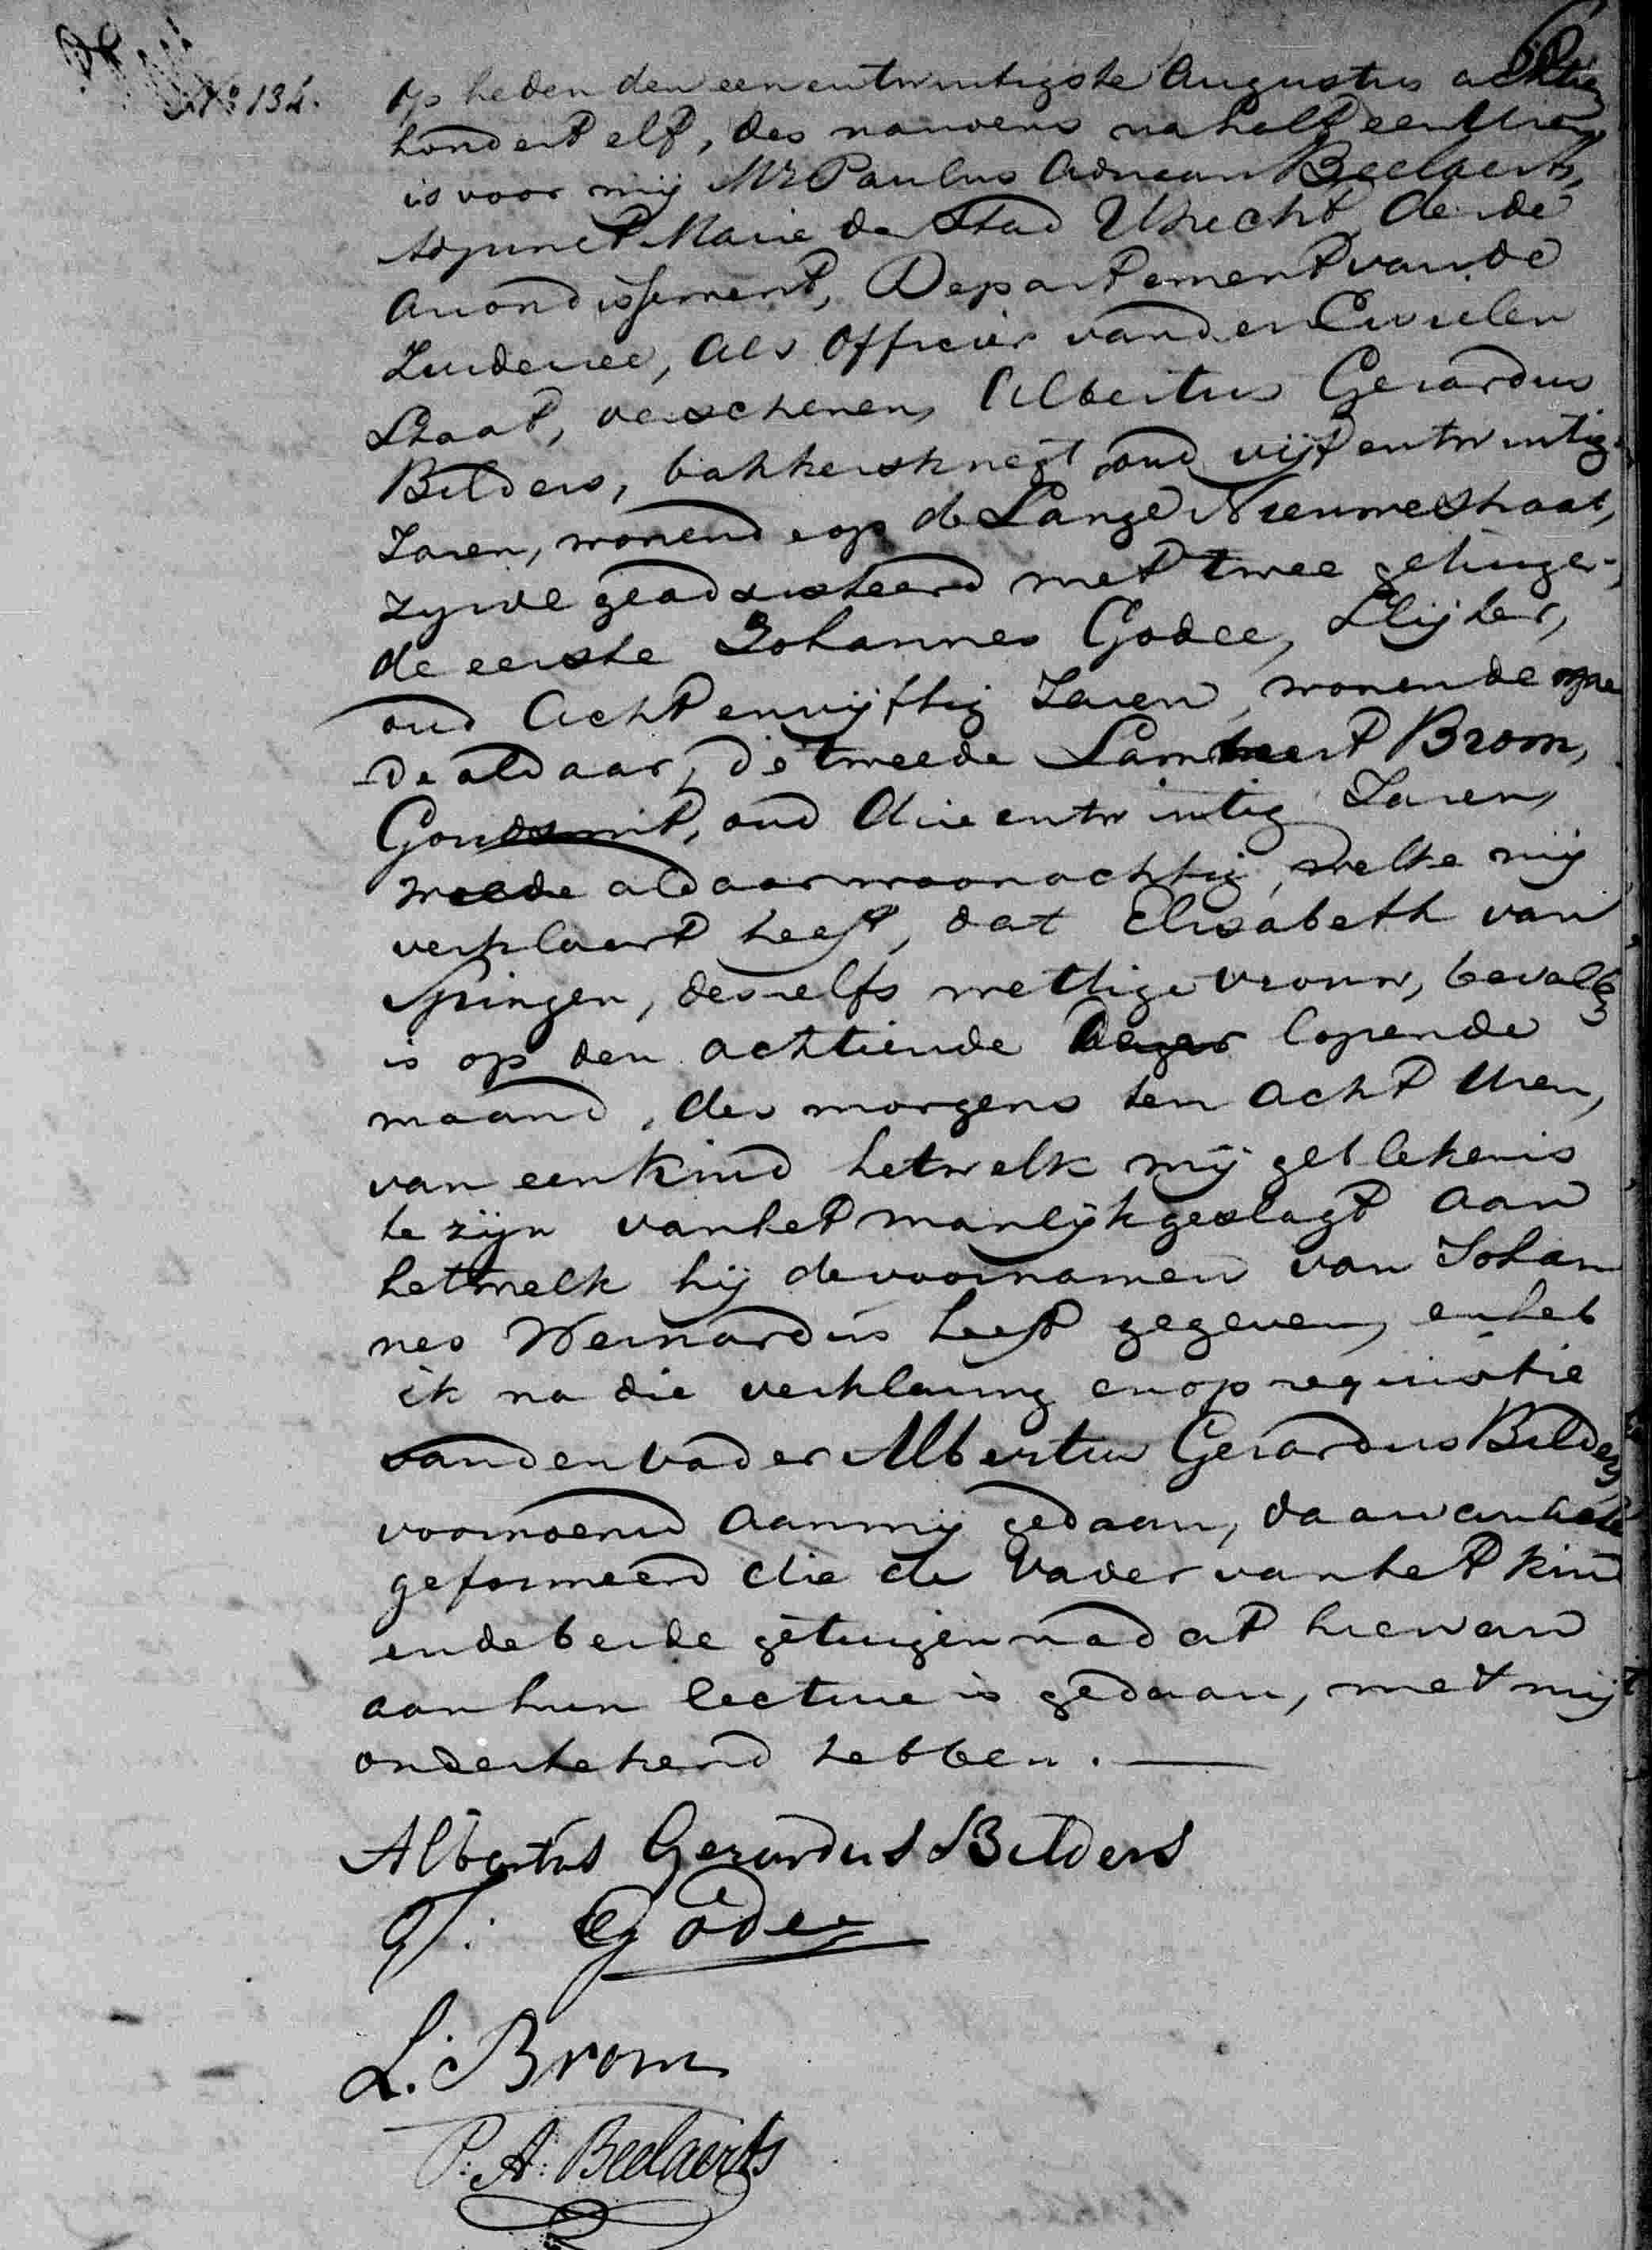 No 134.
Op heden den een entwintigste Augustus achtien
hondert elf, des nanoens na half een Uren
is voor mij Mr Paulus Adriaan Beelaerts,
Adjunct Maire de Stad Utrecht, derde
Arrondissement, Departement van de
Zuiderzee, als Officier van den Civielen
Staat, verschenen, Albertus Gerardus
Bilders, bakkersknegt oud vijf entwintig
Jaren, wonend op de Lange Nieuwestraat,
zynde geadsisteerd met twee getuigen,
de eerste Johannes Godee, Slijter,
oud Acht envijftig Jaren, wonende
de aldaar, de tweede Lambert Brom,
Goudsmit, oud drie entwintig Jaren,
meede aldaar woonachtig, welke mij
verklaart heeft, dat Elisabeth van
Springen, deszelfs wettige vrouw, bevallen
is op den achtiende dezer lopende
maand, des morgens ten acht Uren,
van een kind hetwelk mij gebleken is
te zijn van het manlijk geslagt aan
hetwelk hij de voornamen van Johan
nes Wernardus heeft gegeven, en heb
ik na die verklaring en op requisitie
van den vader Albertus Gerardus Bilders
voornoemd aan mij gedaan, daar van acte
geformeerd die de Vader van het kind
en de beide getuigen na dat hier van
aan hun lecture is gedaan, met mij
ondertekend hebben.
Albertus Gerardus Bilders
J: Godee
L. Brom
P: A: Beelaerts